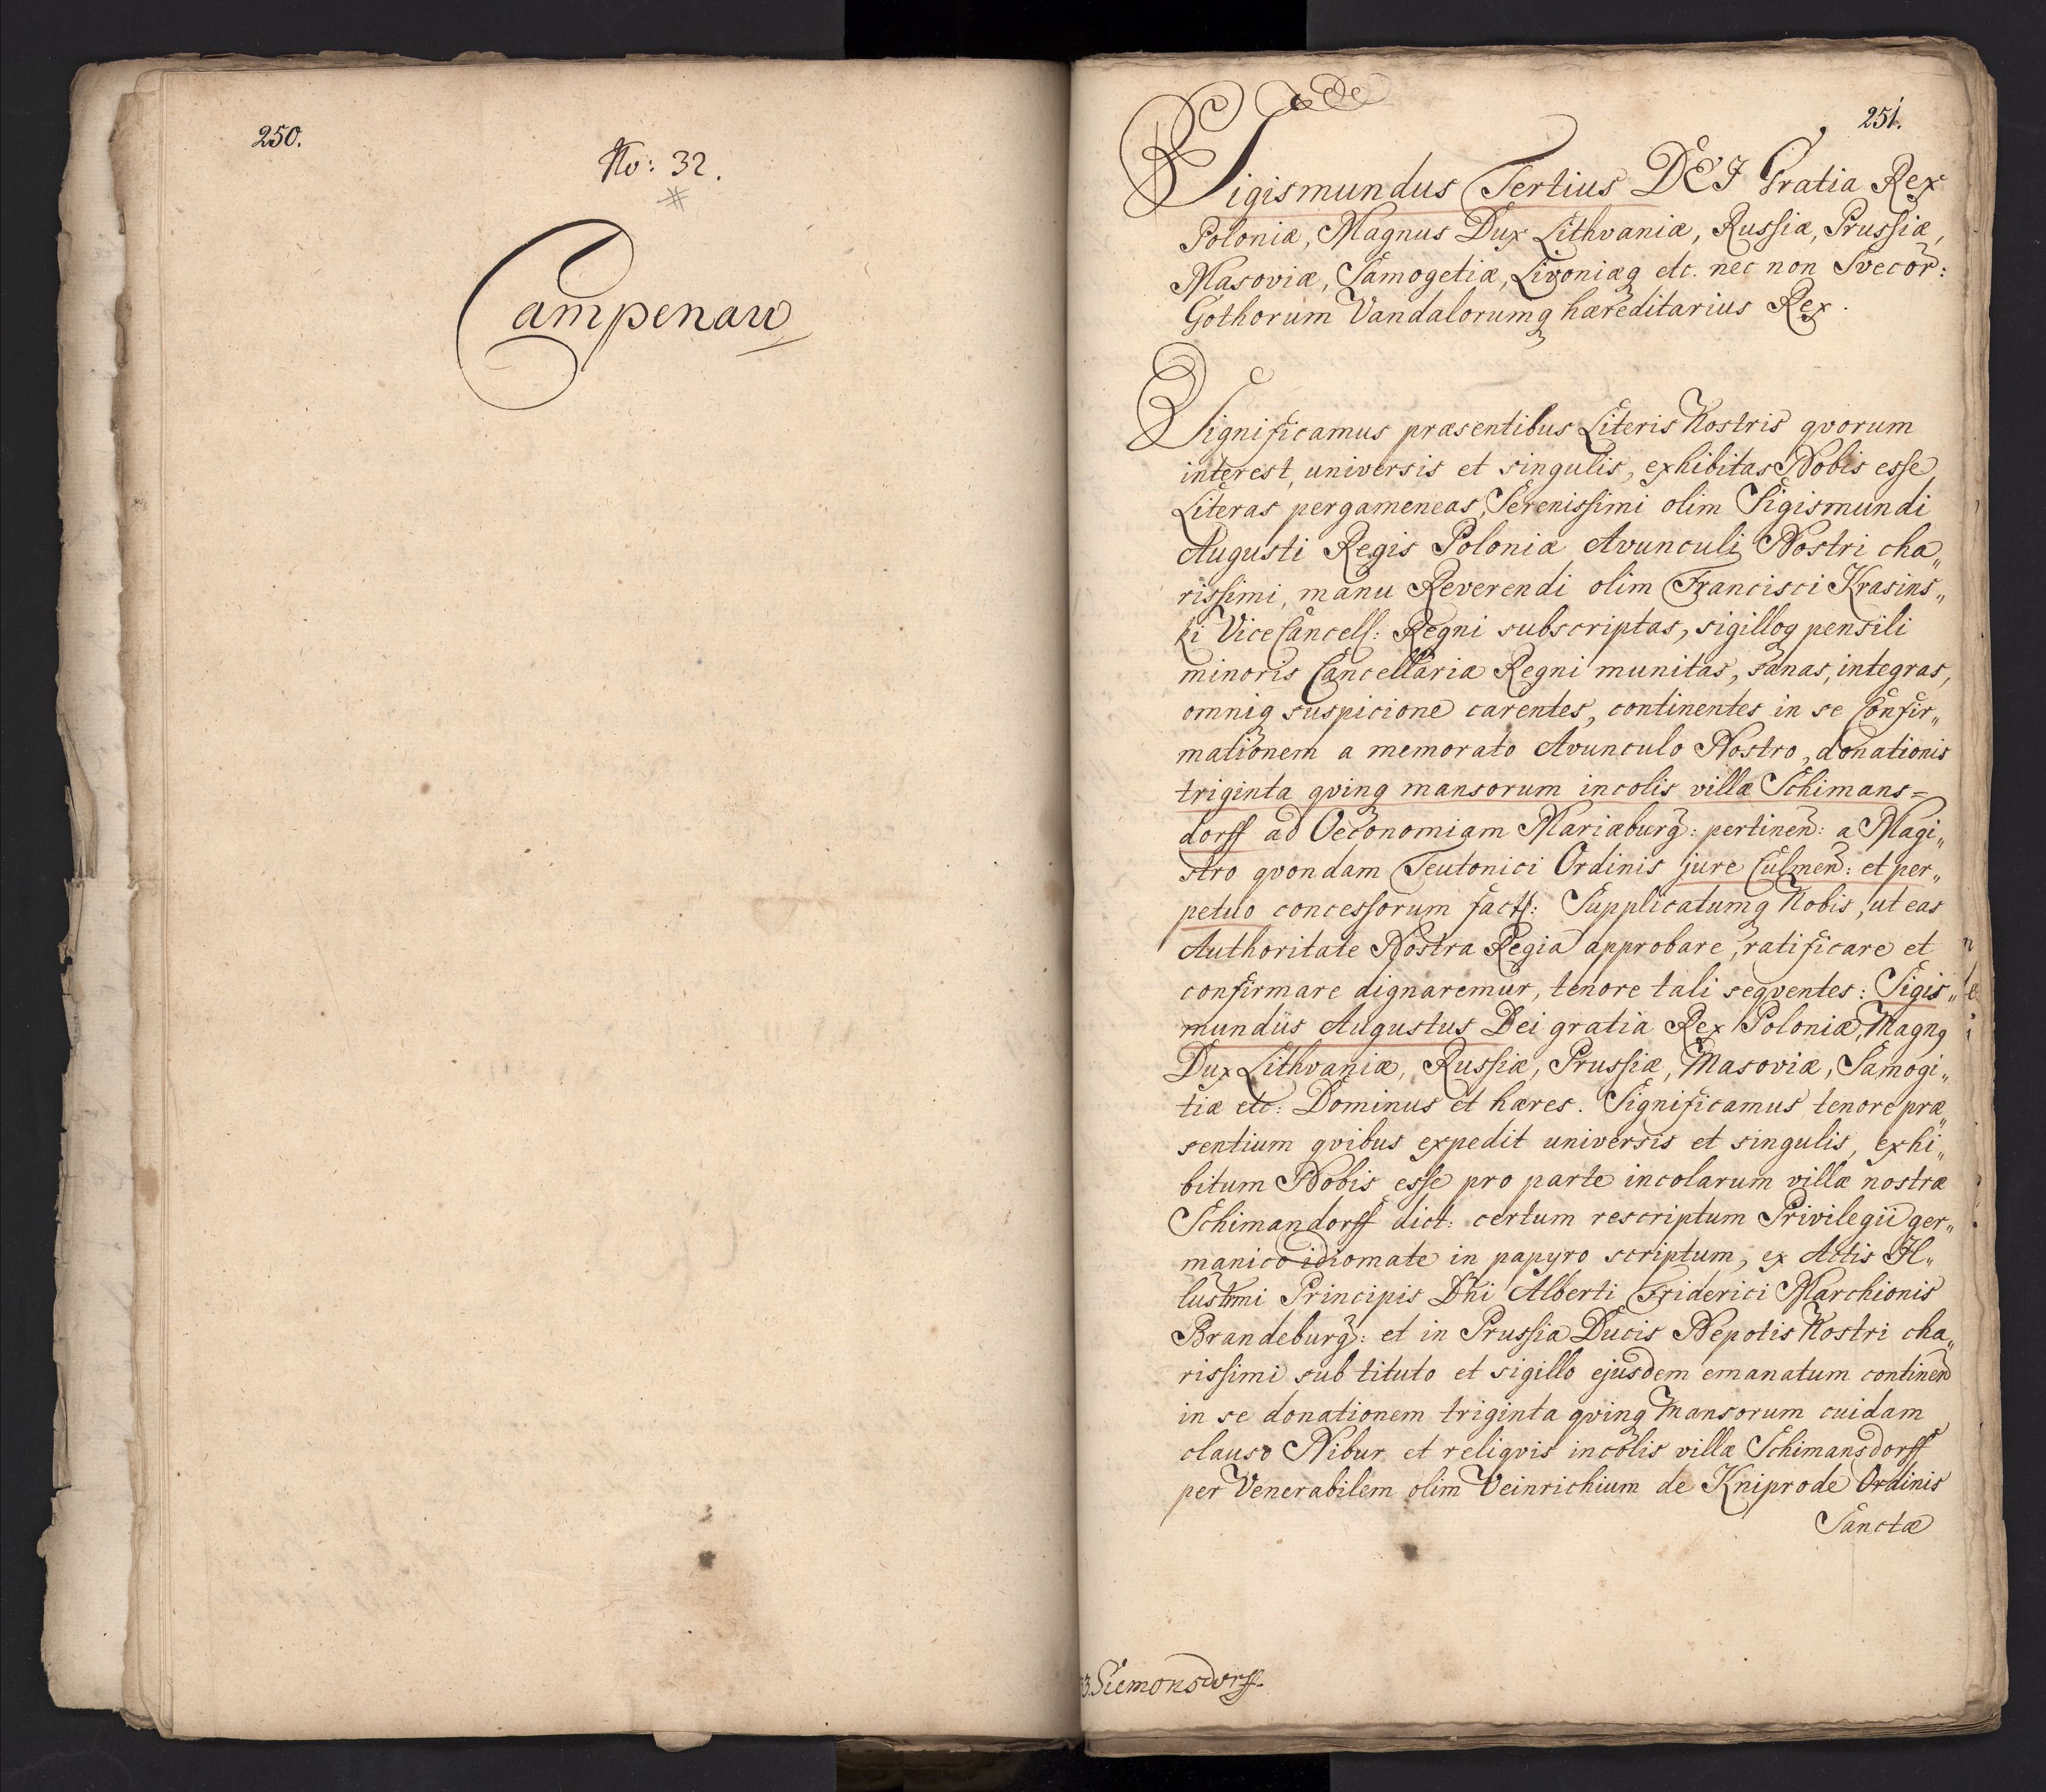 250.
No: 32.
#
Campenau
251.
Sigismundus Tertius DEI Gratia Rex
Poloniæ, Magnus Dux Lithvaniæ, Russiæ, Prussiæ,
Masoviæ, Samogetiæ, Livoniæq etc. nec non Svecor:
Gothorum Vandalorumq hæreditarius Rex.
Significamus præsentibus Literis Nostris qvorum
interest, universis et singulis, exhibitas Nobis esse
Literas pergameneas, Serenissimi olim Sigismundi
Augusti Regis Poloniæ Avunculi Nostri cha„
rissimi, manu Reverendi olim Francisci Krasins„
ki Vice Cancell: Regni subscriptas, sigilloq pensili
minoris Cancellariæ Regni munitas, sanas, integras,
omniq suspicione carentes, continentes in se Confir„
mationem a memorato Avunculo Nostro, donationis
triginta qvinq mansorum incolis villæ Schimans=
dorff ad Oeconomiam Mariæburg: pertinen: a Magi„
stro qvondam Teutonici Ordinis jure Culmen: et per„
petuo concessorum fact: Supplicatumq Nobis, ut eas
Authoritate Nostra Regia approbare, ratificare et
confirmare dignaremur, tenore tali seqventes: Sigis„
mundus Augustus Dei gratia Rex Poloniæ, Magnq
Dux Lithvaniæ, Russiæ, Prussiæ, Masoviæ, Samogi„
tiæ etc: Dominus et hæres. Significamus tenore præ„
sentium qvibus expedit universis et singulis, exhi„
bitum Nobis esse pro parte incolarum villæ nostræ
Schimandorff dict: certum rescriptum Privilegii ger„
manico idiomate in papyro scriptum, ex Actis Il„
lustrmi Principis Dni Alberti Friderici Marchionis
Brandeburg: et in Prussia Ducis Nepotis Nostri cha„
rissimi sub tituto et sigillo ejusdem emanatum continen
in se donationem triginta qvinq Mansorum cuidam
clauso Nibur et reliqvis incolis villæ Schimansdorff
per Venerabilem olim Veinrichium de Kniprode Ordinis
Sanctæ
33. Siemonsdorff.